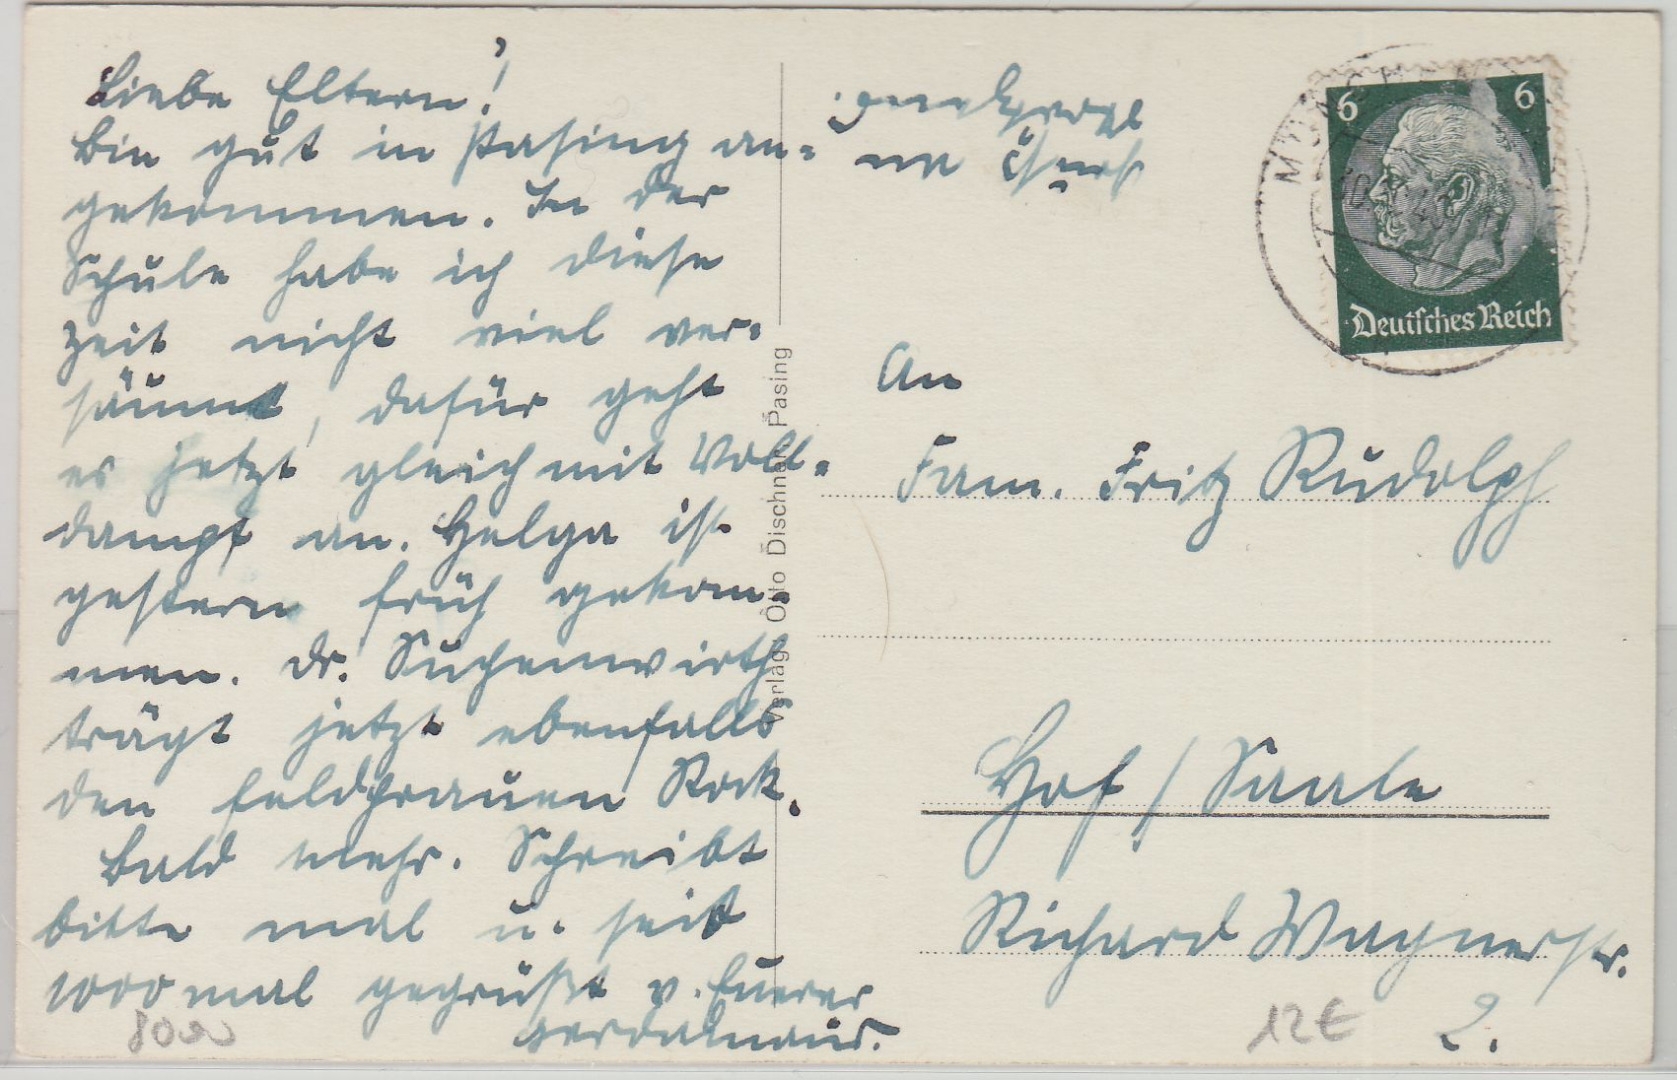 Liebe Eltern!
Bin gut in Pasing an-
gekommen. In der
Schule habe ich diese
Zeit nicht viel ver-
säumt, dafür geht
es jetzt gleich mit Voll-
dampf an. Helga ist
gestern früh gekom-
men. Dr. Suchenwirth
trägt jetzt ebenfalls
den feldgrauen Rock.
Bald mehr. Schreibt
bitte mal u. seid
1000 mal gegrüßt v. Eurer
6 6
Deutsches Reich
MÜNCHEN
Verlag Otto Dischner, Pasing
An
Fam. Fritz Rudolph
Hof / Saale
Richard Wagnerstr.
2.
12 €